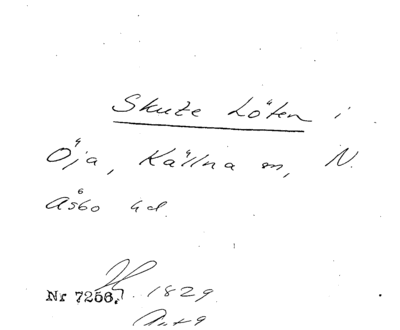 Skute Löten i
Öja, Källna sn, N.
Åsbo hd.
Nr 7256. 1829